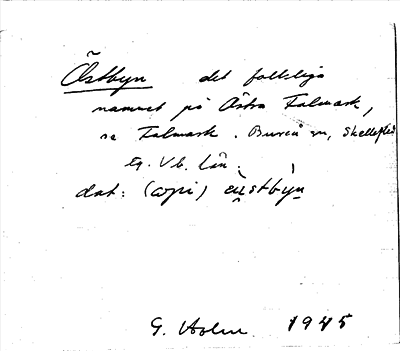 Östbyn det folkliga
namnet på Östra Falmark,
se Falmark. Bureå sn, Skellefteå
tg. Vb. län.
dat: (api) östbýn
G. Holm. 1945